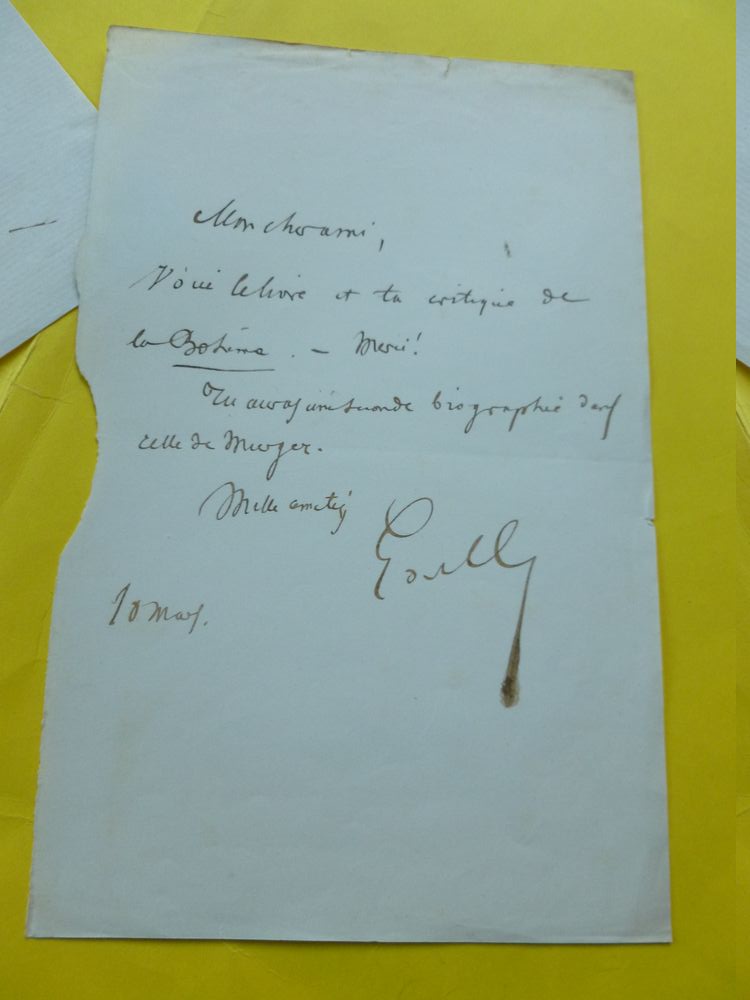 Mon cher ami,
J'ai le livre et ta critique de
la Bohème. – Merci!
Tu auras une seconde biographie dans
celle de Murger.
Mille amitiés
10 mars.